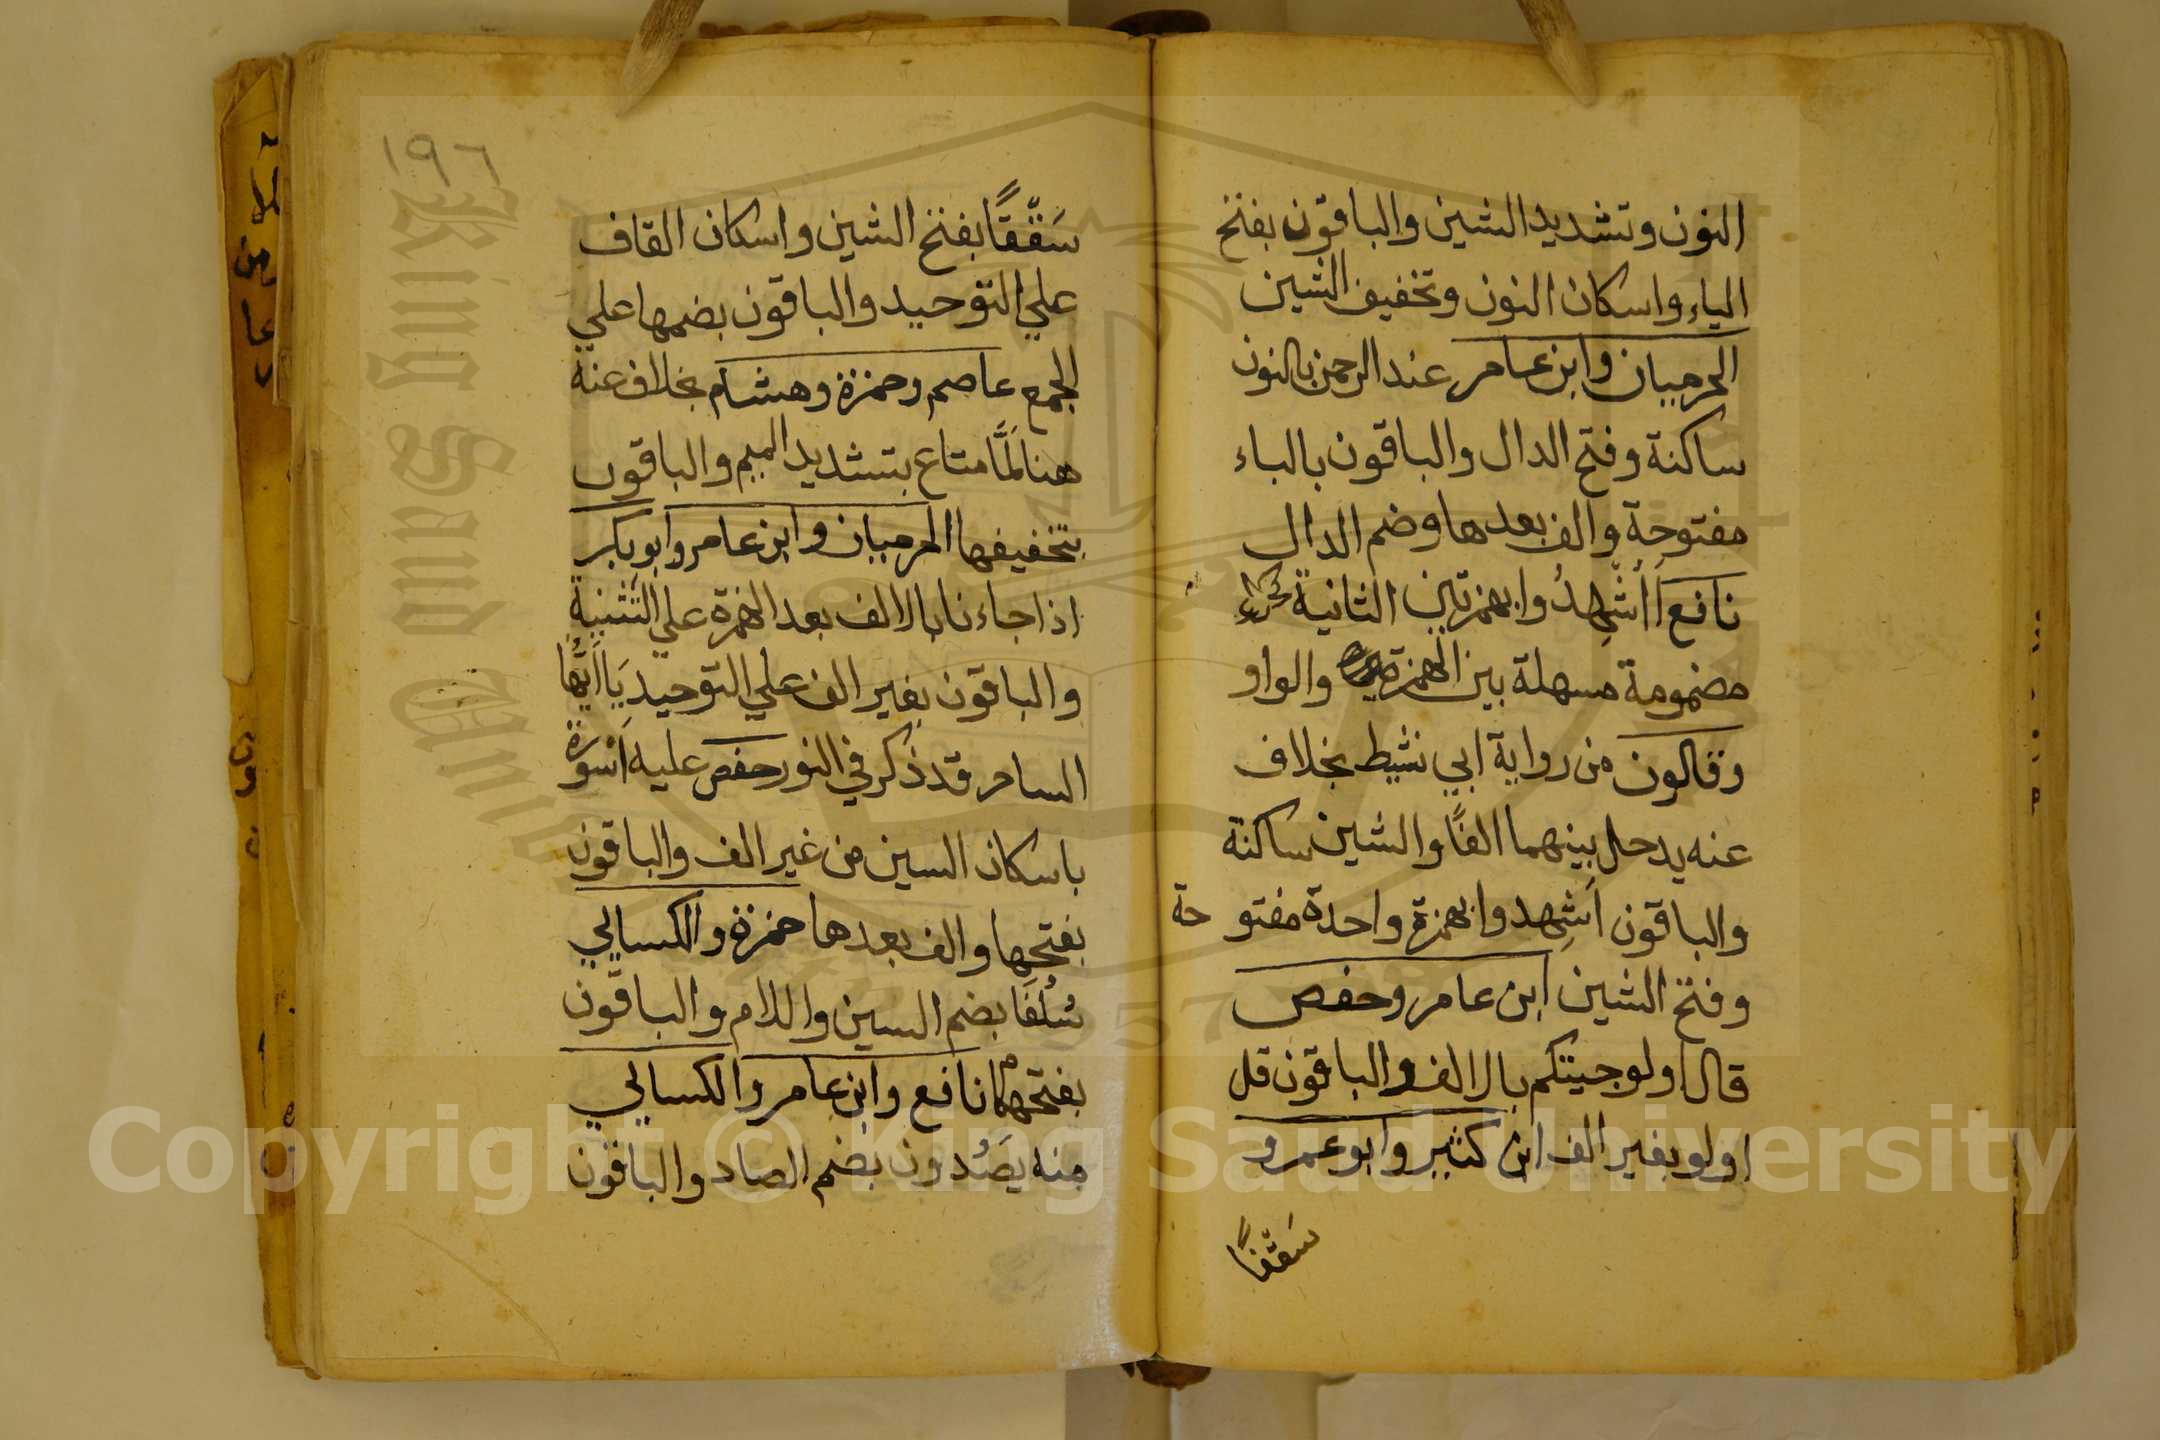 النون وتشديد الشين والباقون بفتح
الياء واسكان النون وتخفيف الشين
الحرميان وابن عامر عند الرحمن بالنون
ساكنة وفتح الدال والباقون بالباء
مفتوحة والف بعدها وضم الدال
نافع أَاُشْهِدُوا بهمزتين الثانية
مضمومة مسهلة بين الهمزة والواو
وقالون من رواية ابي نشيط بخلاف
عنه يدخل بينهما الفًا والشين ساكنة
والباقون اَشِهدوا بهمزة واحدة مفتوحة
وفتح الشين ابن عامر وحفص
قال اولو جيتكم بالالف والباقون قل
اولو بغير الف ابن كثير وابو عمرو
سَقفًا
١٩٦
سَقْفًا بفتح الشين واسكان القاف
علي التوحيد والباقون بضمها علي
الجمع عاصم وحمزة وهشام بخلاف عنه
هنا لَمَّا متاع بتشديد الميم والباقون
بتخفيفها الحرميان وابن عامر وابو بكر
اذا جاءنا بالالف بعد الهمزة علي التثنية
والباقون بغير الف علي التوحيد يَا اَيُّهَا
الساحر قد ذكر في النور حفص عليه اَسْوِرَة
باسكان السين من غير الف والباقون
بفتحها والف بعدها حمزة والكسايي
سُلُفًا بضم السين واللام والباقون
بفتحهما نافع وابن عامر والكسايي
منه يَصُدون بضم الصاد والباقون
King Saud University
1957
Copyright © King Saud University